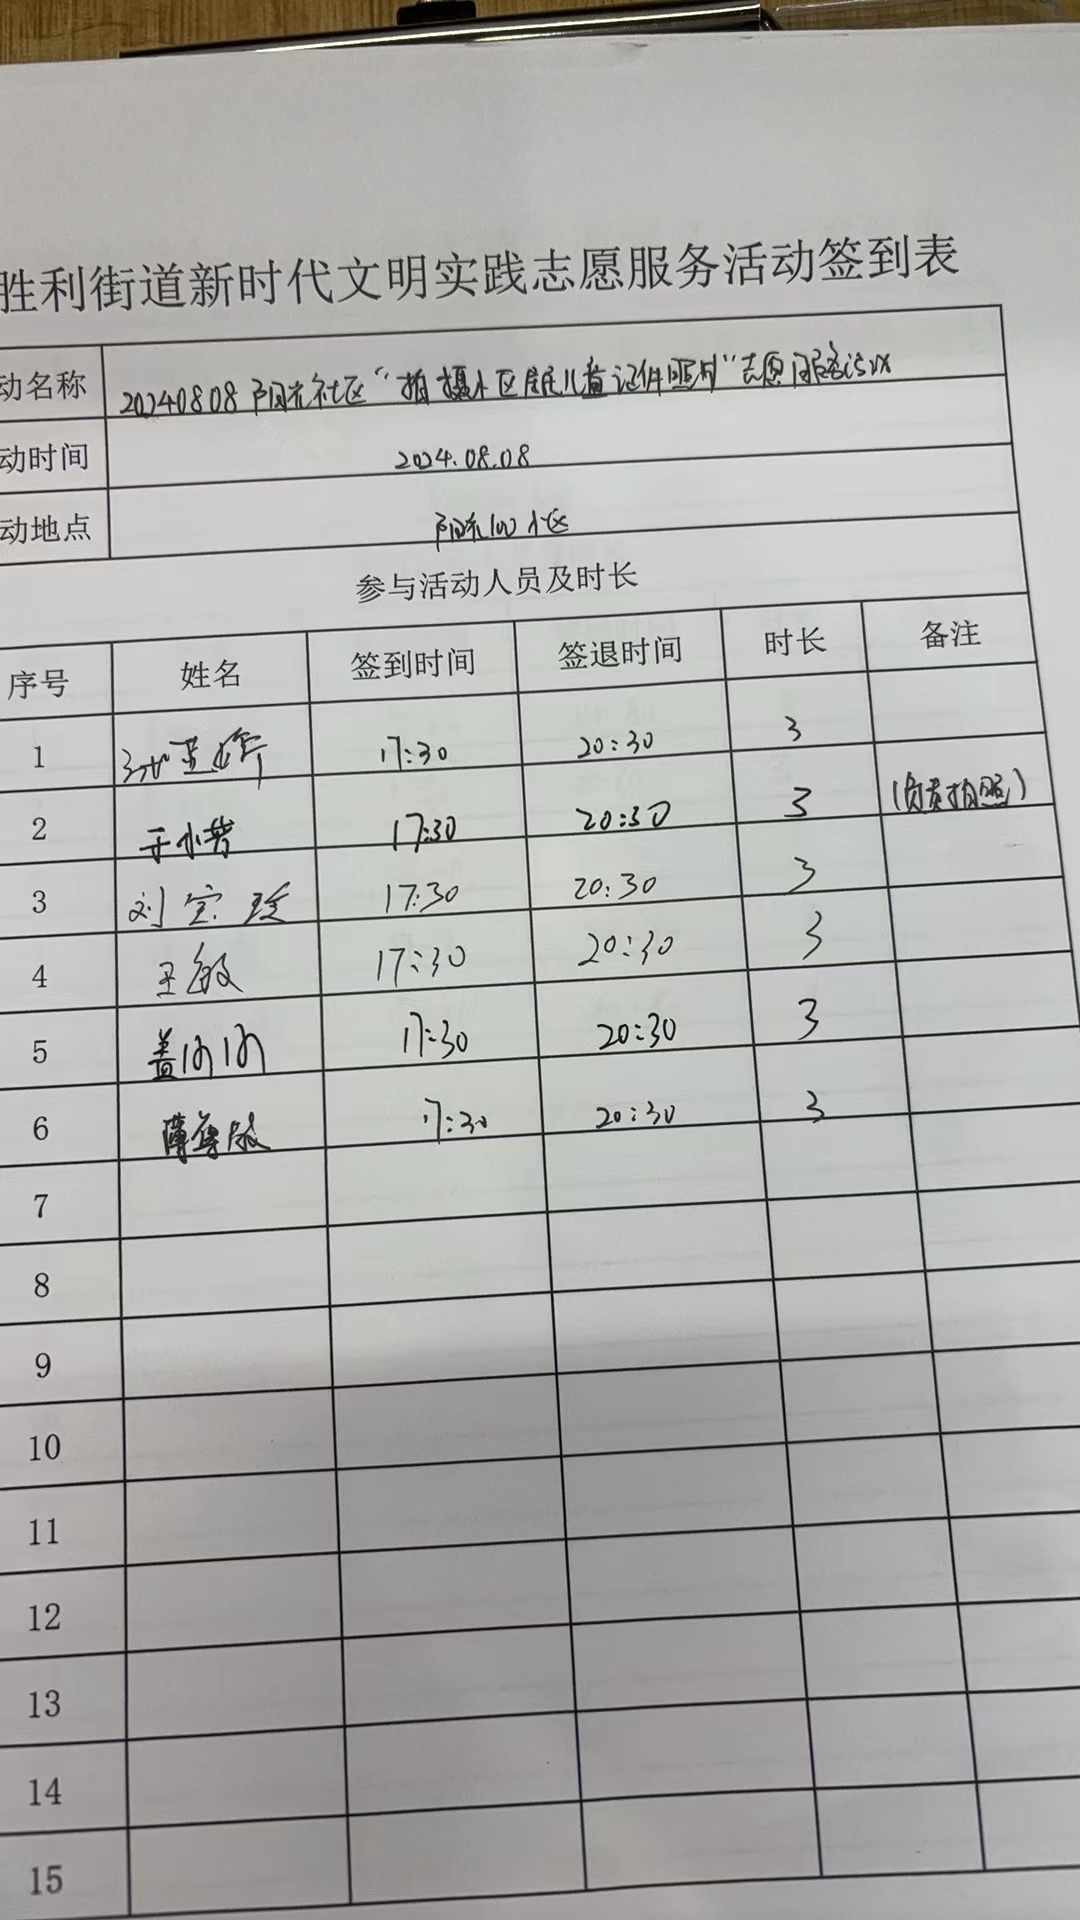 胜利街道新时代文明实践志愿服务活动签到表
动名称 20240808阳光社区“拍摄小区居民儿童证件照片”志愿服务活动
动时间 2024.08.08
动地点 阳光100小区
参与活动人员及时长
序号 姓名 签到时间 签退时间 时长 备注
1 17:30 20:30 3
2 于小芳 17:30 20:30 3 (负责拍照)
3 刘宝 17:30 20:30 3
4 王敏 17:30 20:30 3
5 盖 17:30 20:30 3
6 薄 17:30 20:30 3
7
8
9
10
11
12
13
14
15